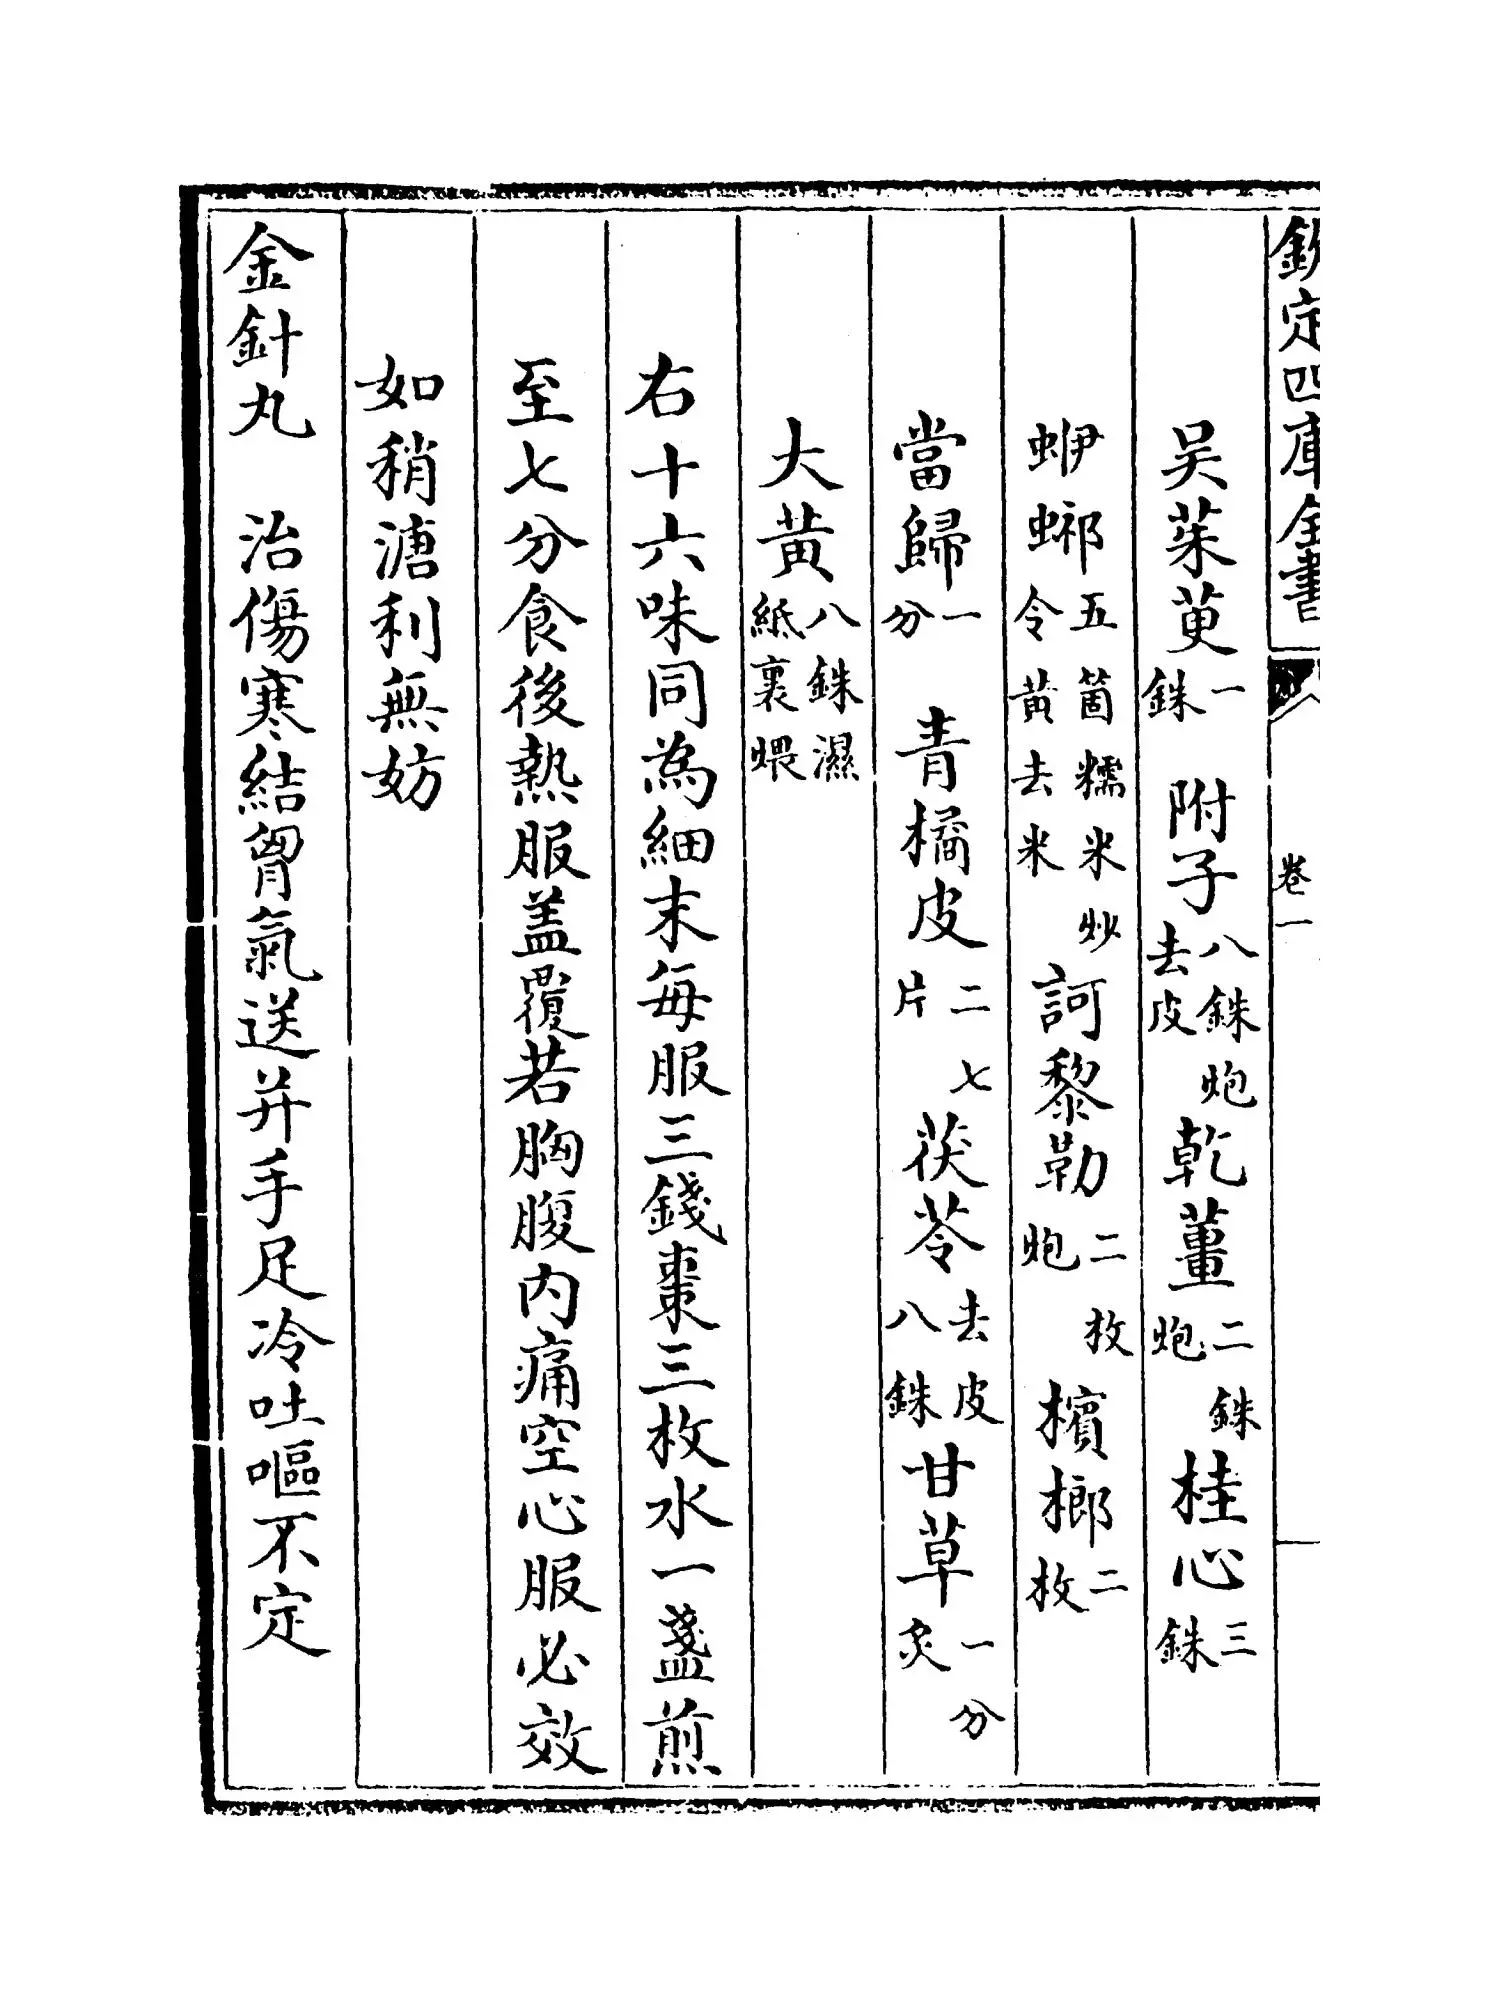 欽定四庫全書 卷一
吳茱萸一銖 附子八銖炮去皮 乾薑二銖炮 桂心三銖
蛜螂五箇糯米炒令黄去米 訶黎勒二枚炮 檳榔二枚
當歸一分 青橘皮二七片 茯苓去皮八銖 甘草一分炙
大黄八銖濕紙裹煨
右十六味同為細末每服三錢棗三枚水一盞煎
至七分食後熱服盖覆若胸腹内痛空心服必效
如稍溏利無妨
金針丸 治傷寒結胷氣送并手足冷吐嘔不定